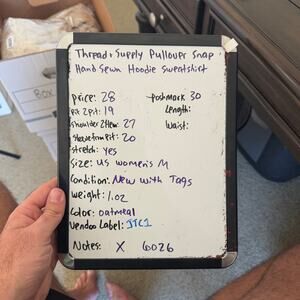 Thread + Supply Pullover Snap
Hand Sewn Hoodie Sweatshirt
Price: 28
Poshmark 30
Pit 2 Pit: 19
Length:
Shoulder 2 Hem: 27
Waist:
Sleeve from Pit: 20
Stretch: Yes
Size: US Women's M
Condition: New with Tags
Weight: 1.02
Color: Oatmeal
Vendoo Label: JTC1
Notes: X 6026
Box